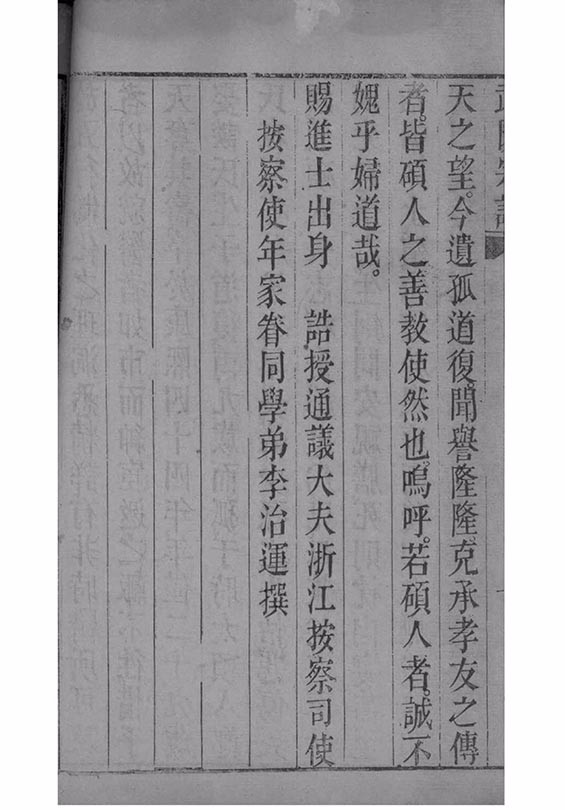 天之望。今遺孤道復。聞譽隆隆。克承孝友之傳
者。皆碩人之善教使然也。嗚呼。若碩人者。誠不
媿乎婦道哉。
賜進士出身　誥授通議大夫浙江按察司使
按察使年家眷同學弟李治運撰